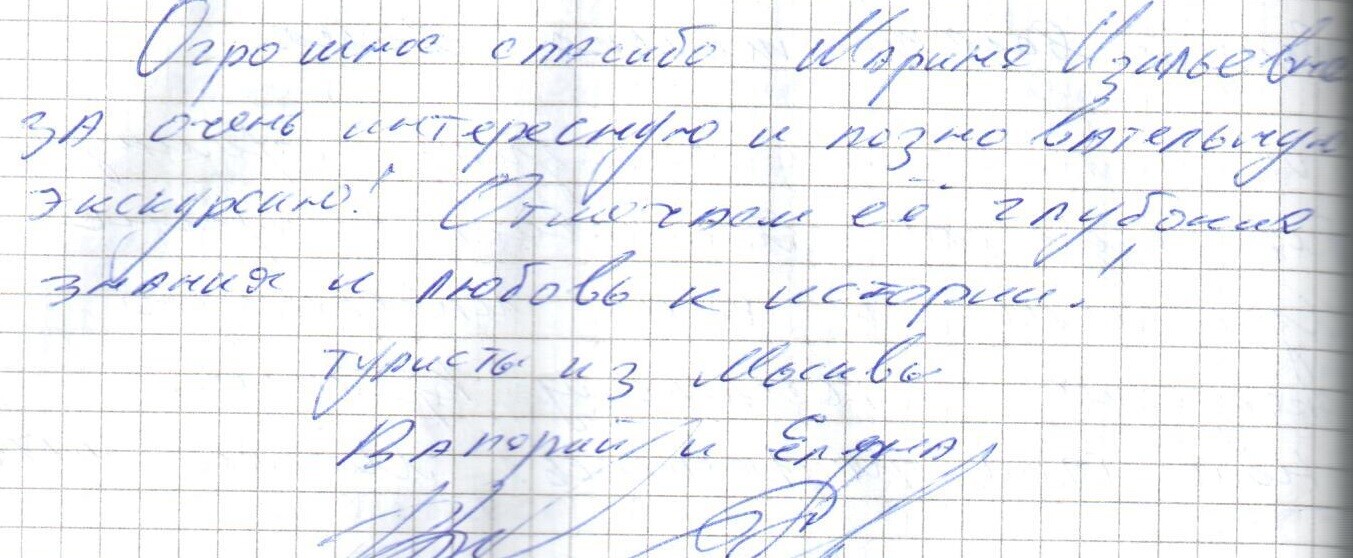 Огромное спасибо Марине Изильевне
за очень интересную и познавательную
экскурсию! Отмечаем её глубокие
знания и любовь к истории!
туристы из Москвы
Валерий и Елена